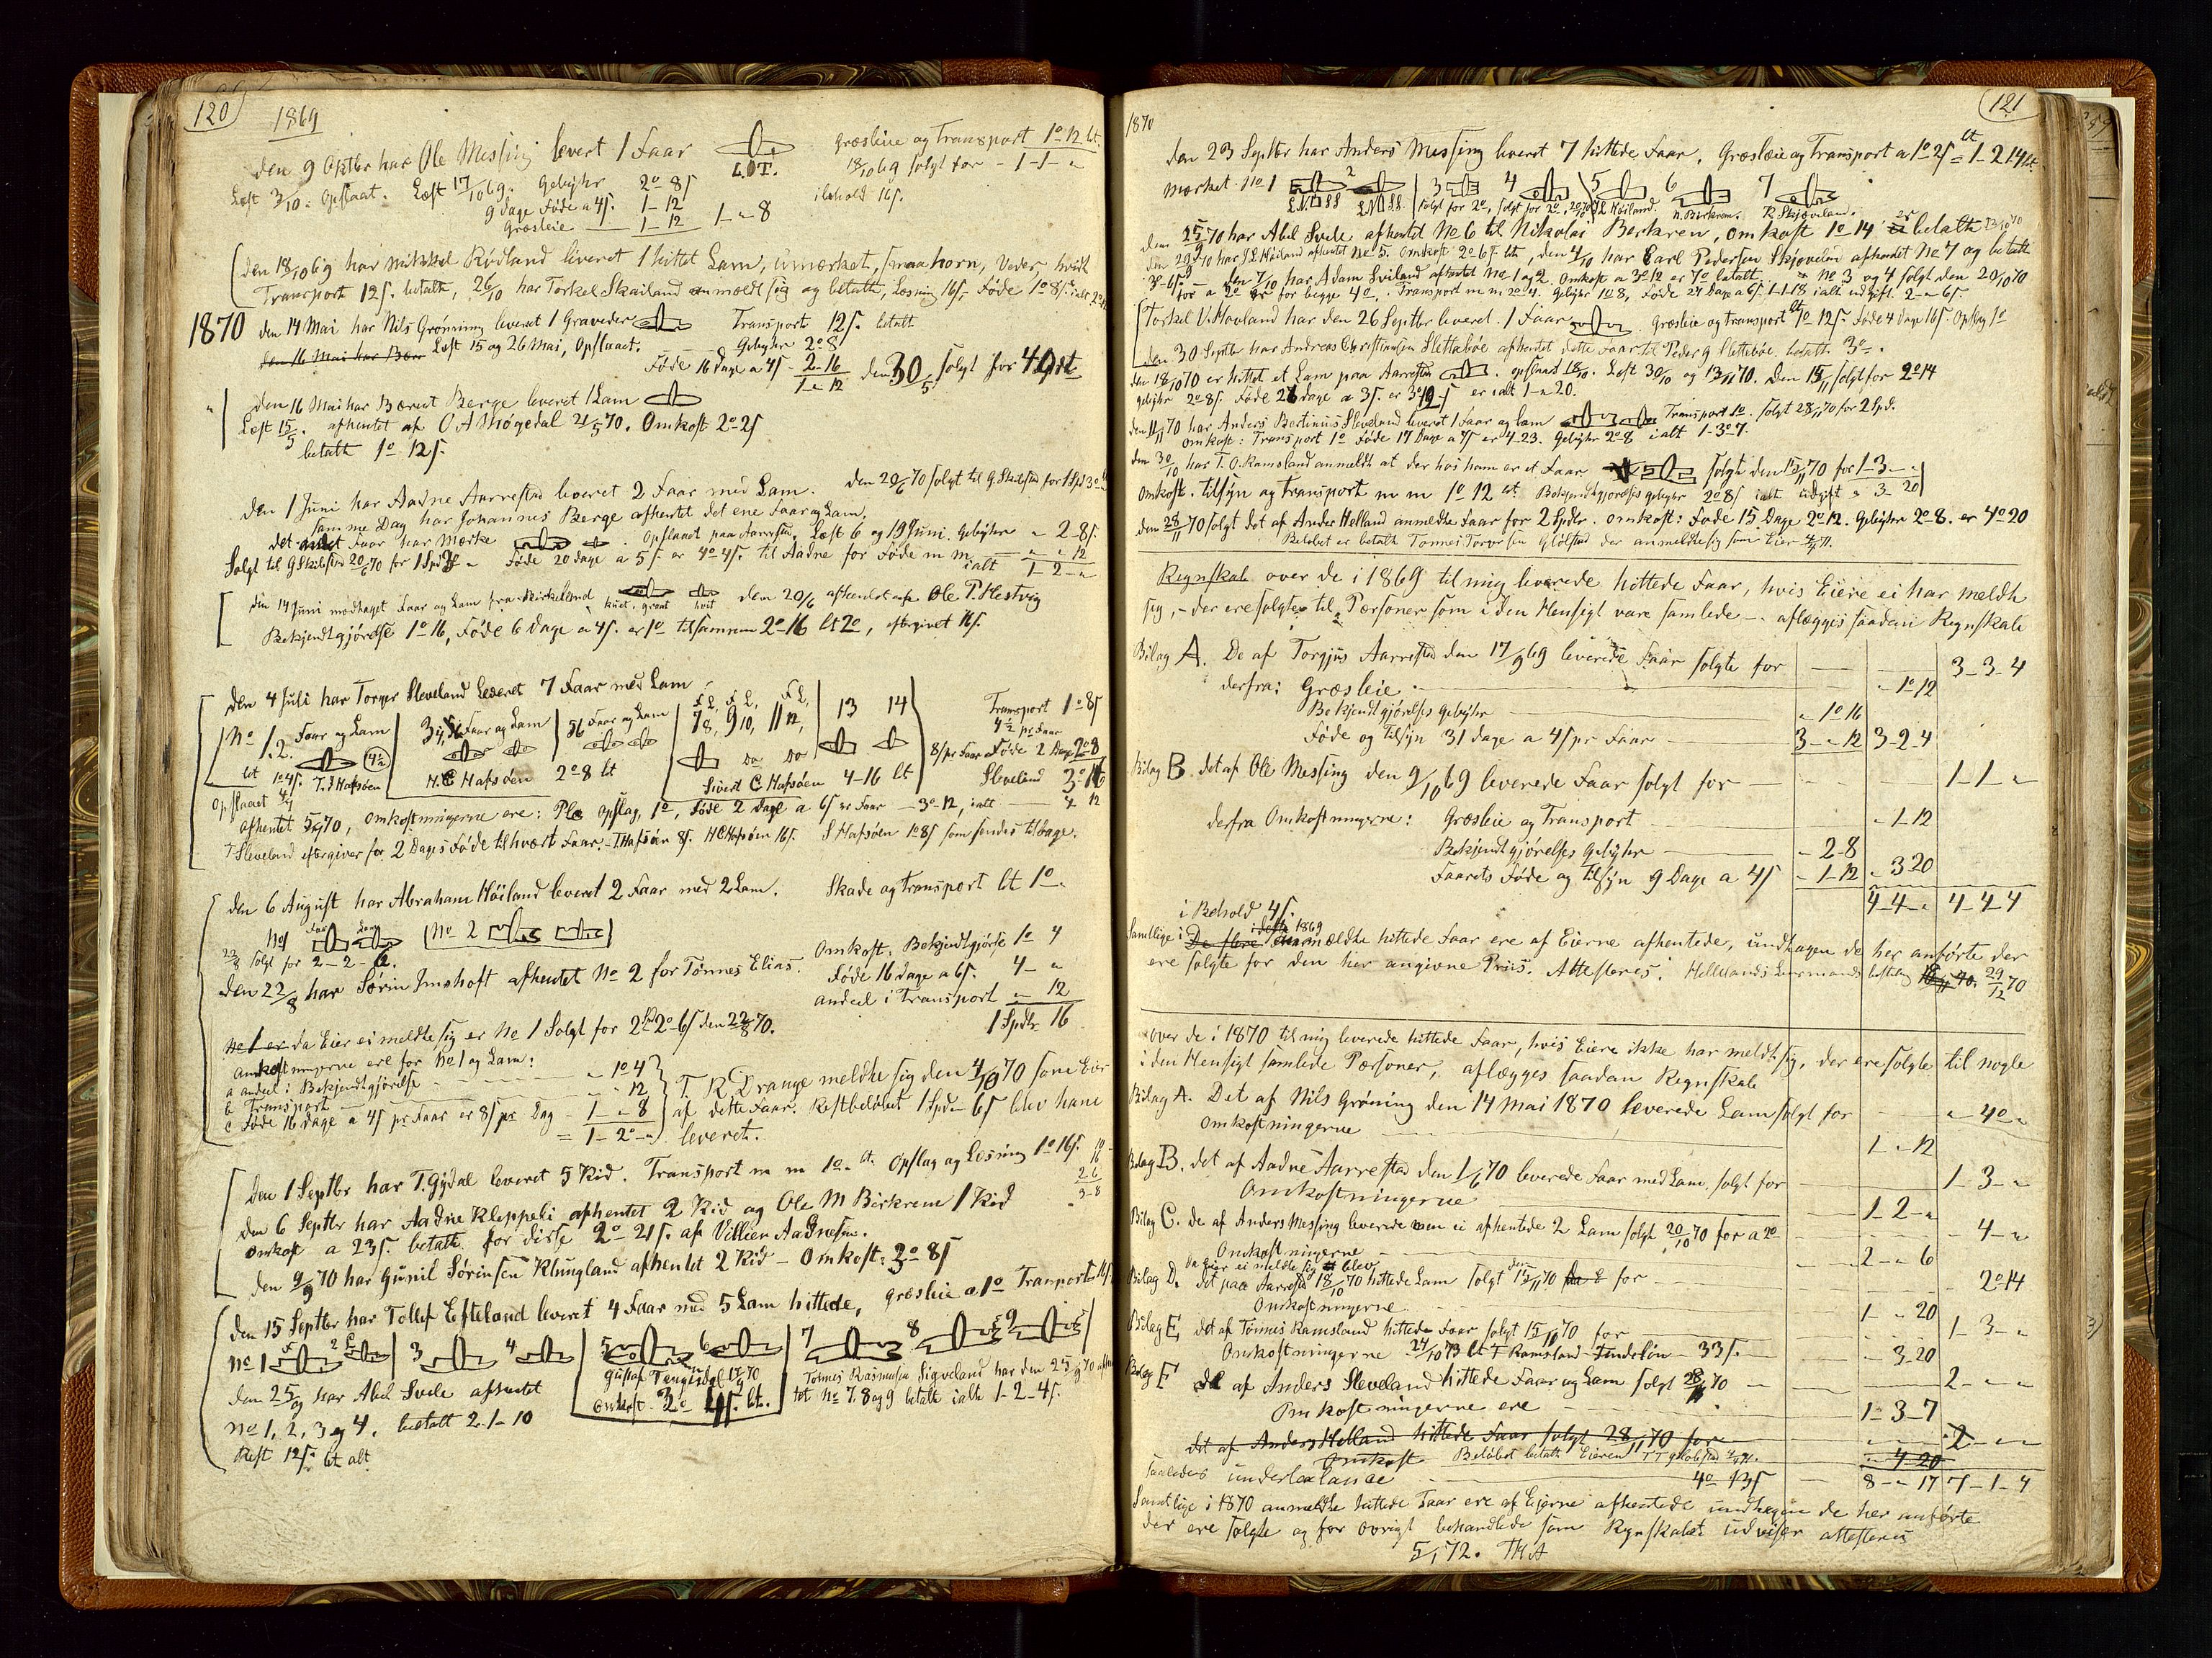 120
1869
den 9 Oktbr har Ole Messing levert 1 Faar
L.O.T.
Græsleie og Transport 1º 12 bt.
18/10 69 solgt for - 1-1- "
Læst 3/10. Opslaat. Læst 17/10 69. Gebyhr 2º 8ſ
ibehold 16ſ.
9 dage Føde a 4ſ. 1-12
Græsleie 1-12 1-"-8
den 18/10 69 har Mikkel Rødland leveret 1 hittet Lam, umærket, smaa horn, Veder, hvidt
Transport 12ſ. betalt, 26/10 har Torkel Skailand anmeldt sig og betalt, Løsning 16ſ. Føde 1º 8ſ
1870 den 14 Mai har Nils Grønning leveret 1 Graveder Transport 12ſ. betalt
den 16 Mai har Bær Læst 15 og 26 Mai, Opslaaet. Gebyhr 2º 8
Føde 16 Dage a 4ſ - 2-16
1-"-12 den 30/5 solgt for 4 Ort
den 16 Mai har Bærent Berge leveret 1 Lam
Læst 15/5. afhentet af O A Møgedal 21/5 70. Omkost 2º-2ſ
betalt 1º 12ſ.
den 1 Juni har Aadne Aarrestad leveret 2 Faar med Lam. den 20/6 70 solgt til G. Skailstad for 1 Spd 3º
samme Dag har Johannes Berge afhentet det ene Faar og Lam.
det andet Faar har Mærke Opslaaet paa Aarrestad, Læst 6 og 19 Juni. Gebyhr " 2-8ſ.
Solgt til G Skailstad 20/6 70 for 1 Spd 3º " Føde 20 dage a 5ſ er 4º 4ſ. til Aadne for Føde m m " " 12
ialt 1-2-"
den 14 Juni modtaget Faar og Lam fra Birkeland den 20/6 afhentet af Ole P. Hestvig
Bekjendtgjørelse 1º 16, Føde 6 Dage a 4ſ. er 1º tilsammen 2º 16 bt 2º, eftergivet 16ſ.
den 4 Juli har Torger Sleveland Leveret 7 Faar med Lam
Nº 1.2. Faar og Lam 3,4 Faar og Lam 5 6 Faar og Lam 7 8, 9 10, 11 12, 13 14
Transport 1º 8ſ
4½ pr. Faar
8/pr Faar Føde 2 Dage 2º 8
bt 1º 4ſ. T. J Hafsøen H. C Hafsøen 2º 8 bt Sivert C Hafsøen 4-16 bt Sleveland 3º 16
Opslaaet 4/7
afhentet 5/7 70, Omkostningerne ere: Opslag, 1º, Føde 2 Dage a 6ſ pr Faar - 3º-12, ialt 4 12
T Sleveland eftergiver for 2 Dages Føde til hvert Faar. T. Hafsøen 8ſ. H C Hafsøen 16ſ. S Hafsøen 1º 8ſ som sendes tilbage.
den 6 August har Abraham Høiland leveret 2 Faar med 2 Lam. Skade og Transport bt 1º "
Nº 1 Faar Lam Nº 2
solgt for 2-2-6.
Omkost. Bekjendtgjørse 1º 4
den 22/8 har Sørin Imshoft afhentet Nº 2 for Tønnes Elias. Føde 16 Dage a 6ſ. 4-"
andeel i Transport " 12
1 Spdlr 16
Nº 1 er da Eier ei meldte sig er No 1 Solgt for 2 Spd 2º 6ſ den 22/8 70.
Omkostningerne ere for No 1 og Lam:
a andeel i Bekjendtgjørelse " 1º 4
b Transport " 12
c Føde 16 dage a 4ſ pr Faar er 8ſ pr Dag - 1-"-8
= 1-2º-"
T. R Drange meldte sig den 4/10 70 som Eier
af dette Faar. Restbeløbet 1 Spd " 6ſ blev ham
leveret.
Den 1 Septbr har T. Gydal leveret 5 Kid. Transport m m 1º " bt. Opslag og Læsning 1º 16ſ.
Den 6 Septbr har Aadne Kleppeli afhentet 2 Kid og Ole M Birkrem 1 Kid
Omkost a 23ſ. betalt for disse 2º 21ſ. af Villien Aadnesen.
den 9/9 70 har Gunil Sørinsen Klungland afhentet 2 Kid - Omkost: 3º 8ſ
den 15 Septbr har Tollef Efteland leveret 4 Faar med 5 Lam hittede, græsleie a 1º Tranport 16ſ.
Nº 1 2 3 4 5 6 7 8 9
den 25/9 har Abel Svele afhentet
Nº 1, 2, 3 og 4. betalt 2-1-10
Rest 12ſ. bt alt
Gustaf Tengesdal 17/9 70
Omkost 3º 4ſ. bt.
Tønnes Rasmusen Sigveland har den 25/9 70 afhen
tet Nº 7. 8 og 9 betalt ialt 1-2-4ſ.
121
1870
den 23 Septbr har Anders Messing leveret 7 hittede Faar. Græsleie og Transport a 1º 2ſ = 1-2 14 bt.
Mærket. No 1 2 3 4 5 6 7
solgt for 2º, solgt for 2º, J L Høiland. N. Birkrem. R Skjæveland.
den 25/9 70 har Abel Svele afhentet No 6 til Nikolai Berkren, Omkost 1º 14 er betalt
den 29/9 70 har J L Høiland afhentet No 5. Omkost 2º 6ſ bt, den 4/10 har Carl Pedersen Skjøveland afhentet No 7 og betalt
3º-6ſ. - den 7/10 har Adam Sviland afhentet No 1 og 2. Omkost a 3º 12 er 7º betalt No 3 og 4 solgt den 20/10 70
for a 2º er for begge 4º. Transport m m 2º 4. Gebyhr 1º 8, Føde 27 Dage a 6ſ. 1-1-18 ialt udgift. 2-"-6ſ.
Torkel V. Hovland har den 26 Septbr leveret 1 Faar Græsleie og transport 1º 12ſ. Føde 4 Dage 16ſ. Opslag 1º
Den 30 Septbr har Andreas Christiansen Slettebøe afhentet dette Faar til Peder G Slettebøe. betalt 3º ".
den 18/10 70 er hittet et Lam paa Aarrestad opslaaet 18/10. Læst 30/10 og 13/11 70. Den 15/11 solgt for 2º 14
gebyhr 2º 8ſ. Føde 28 dage a 3ſ. er 3º 12ſ er ialt 1-"-20.
den 11/11 70 har Anders Bertinius Sleveland leveret 1 Faar og Lam Transport 1º. Solgt 28/11 70 for 2 Spd.
Omkost: Transport 1º Føde 17 Dage a 7ſ er 4-23. Gebyhr 2º 8 ialt 1-3º 7.
den 30/10 har T. O. Ramsland anmeldt at der hos ham er et Faar solgt den 15/11 70 for 1-3-"
Omkost. tilsyn og Transport m m 1º 12 bt Bekjendtgjørelses gebyhr 2º 8ſ ialt udgift " 3-20
den 28/11 70 solgt det af Ander Helland anmeldte Faar for 2 Spdlr. Omkost: Føde 15 Dage 2º 12. Gebyhr 2º 8. er 4º 20
Beløbet er betalt Tønnes Torgersen Gjølstad der anmeldte sig som Eier
Regnskab over de i 1869 til mig leverede hittede Faar, hvis Eiere ei har meldt
sig, - der ere solgte til Personer som i den Hensigt vare samlede - aflægges saadan Regnskab
Bilag A. De af Torgjus Aarrestad den 17/9 69 leverede Faar solgte for 3-3-4
derfra: Græsleie - 1º 12
Bekjendtgjørelses Gebyhr " 1º 16
Føde og tilsyn 31 dage a 4ſ pr Faar 3-"-12 3-2-4
Bilag B. det af Ole Messing den 9/10 69 leverede Faar solgt for 1-1-"
derfra Omkostningerne: Græsleie og Transport - 1-12
Bekjendtgjørelses Gebyhr - 2-8
Faarets Føde og tilsyn 9 Dage a 4ſ - 1-12 - 3 20
i Behold 4ſ. 4-4-" 4-4-4
Samtlige i dette 1869 anmeldte hittede Faar ere af Eierne afhentede, undtagen de her anførte der
ere solgte for den her angivne Priis. Attesteres. Hellelands Lensmands bestilling 29/12 70
over de i 1870 til mig leverede hittede Faar, hvis Eiere ikke har meldt sig, der ere solgte til nogle
i den Hensigt samlede Personer, aflægges saadan Regnskab
Bilag A. Det af Nils Grøning den 14 Mai 1870 leverede Lam solgt for " 4º "
Omkostningerne 1-"-12
Bilag B. det af Aadne Aarrestad den 1/6 70 leverede Faar med Lam, solgt for 1-3-"
Omkostningerne 1-2-"
Bilag C. de af Anders Messing leverede men ei afhentede 2 Lam solgt 20/10 70 for a 2º - 4-"
Omkostningerne 2-"-6
da Eier ei meldte sig blev
Bilag D. det paa Aarrestad 18/10 70 hittede Lam solgt den 15/11 70 for 2º 14
Omkostningerne 1-"-20
Bilag E, det af Tønnes Ramsland hittede Faar solgt 15/11 70 for 1-3-"
Omkostningerne 24/10 73 bt T Ramsland Findeløn - 33ſ. - 3 20
Bilag F det af Anders Sleveland hittede Faar og Lam solgt 28/11 70 2-"-"
Omkostningerne ere 1-3-7
det af Anders Helland hittede Faar solgt 28/11 70 for 2-"-"
Omkost Beløbet betalt Eieren - 4 20
saaledes underbalance 4º 13ſ 8-"-17 7-1-4
Samtlige i 1870 anmeldte hittede Faar ere af Eierne afhentede undtagen de her anførte
der ere solgte og for øvrigt behandlede som Regnskabet udviser attesteres
5/1 72. TKA